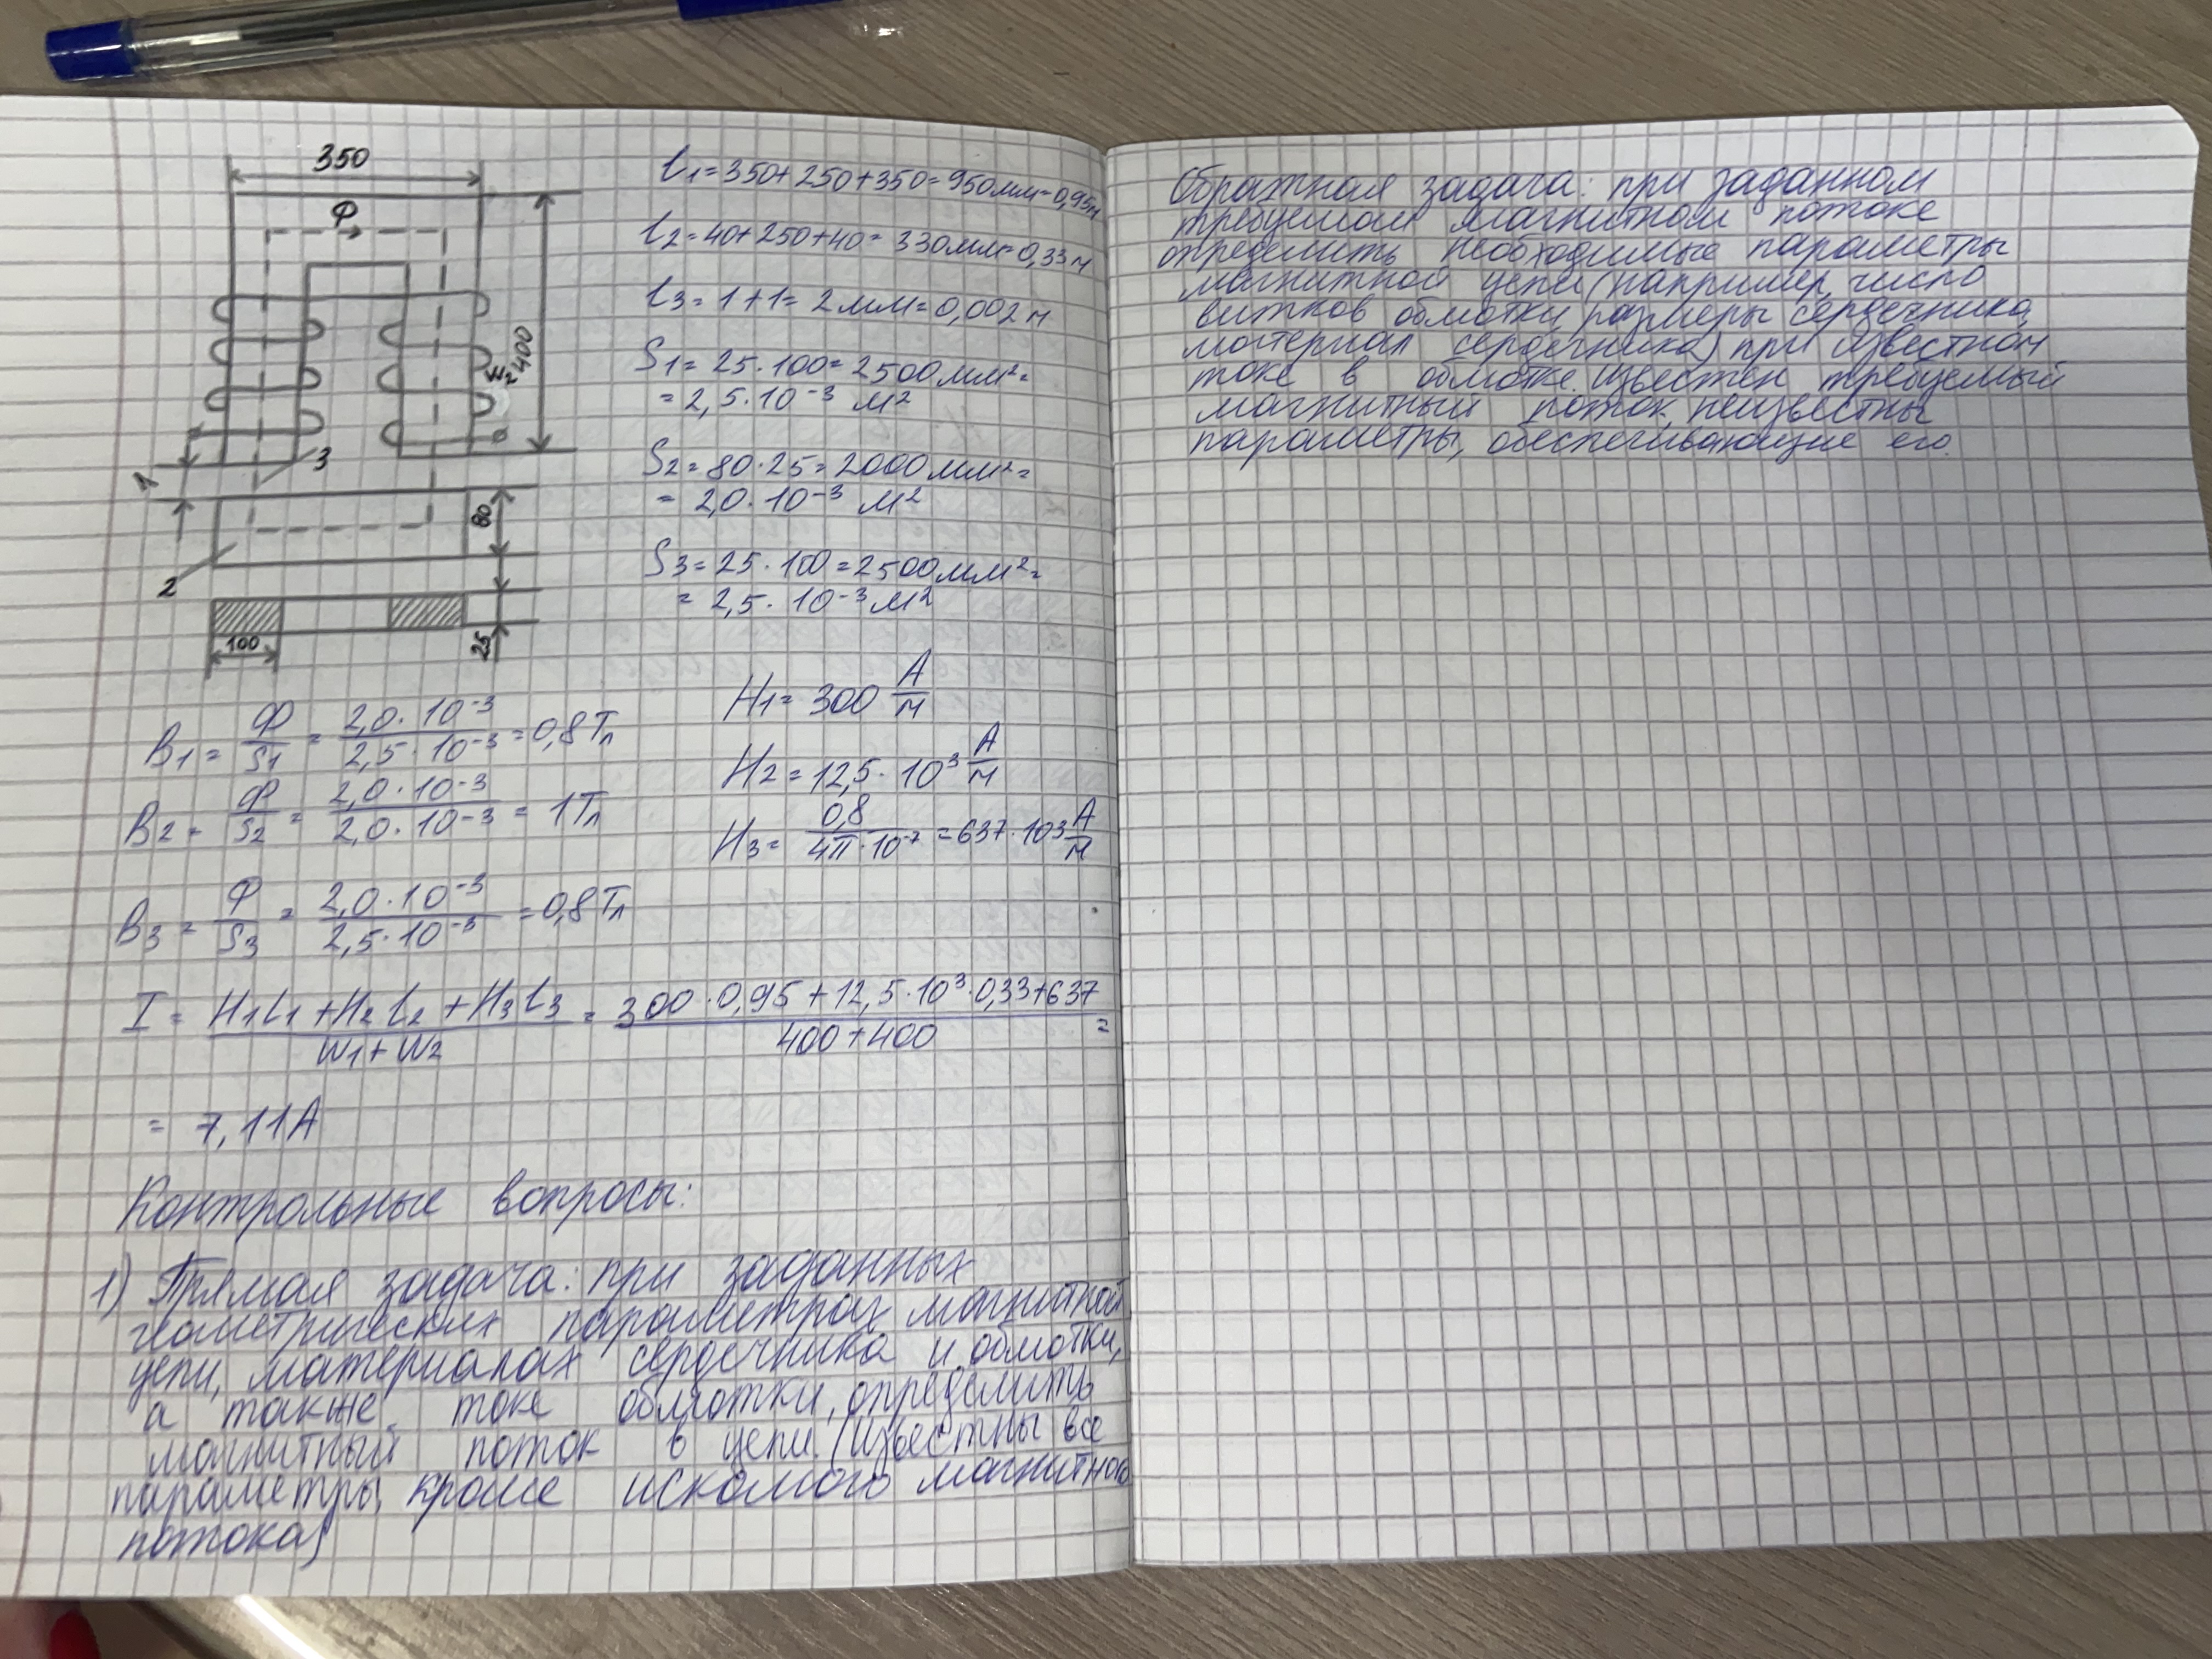 350
Ф
400
W₂
1
3
80
2
100
25
l₁ = 350 + 250 + 350 = 950 мм = 0,95 м
l₂ = 40 + 250 + 40 = 330 мм = 0,33 м
l₃ = 1 + 1 = 2 мм = 0,002 м
S₁ = 25 · 100 = 2500 мм² =
= 2,5 · 10⁻³ м²
S₂ = 80 · 25 = 2000 мм² =
= 2,0 · 10⁻³ м²
S₃ = 25 · 100 = 2500 мм² =
= 2,5 · 10⁻³ м²
B₁ = Ф/S₁ = 2,0 · 10⁻³ / 2,5 · 10⁻³ = 0,8 Тл
B₂ = Ф/S₂ = 2,0 · 10⁻³ / 2,0 · 10⁻³ = 1 Тл
B₃ = Ф/S₃ = 2,0 · 10⁻³ / 2,5 · 10⁻³ = 0,8 Тл
H₁ = 300 А/м
H₂ = 12,5 · 10³ А/м
H₃ = 0,8 / 4π · 10⁻⁷ = 637 · 10³ А/м
I = H₁l₁ + H₂l₂ + H₃l₃ / W₁ + W₂ = 300 · 0,95 + 12,5 · 10³ · 0,33 + 637 / 400 + 400 =
= 7,11 А
Контрольные вопросы:
1) Прямая задача: при заданных
геометрических параметрах магнитной
цепи, материалах сердечника и обмотки,
а также токе обмотки, определить
магнитный поток в цепи. (Известны все
параметры, кроме искомого магнитного
потока)
Обратная задача: при заданном
требуемом магнитном потоке
определить необходимые параметры
магнитной цепи (например, число
витков обмотки, размеры сердечника,
материал сердечника) при известном
токе в обмотке. Известен требуемый
магнитный поток, неизвестны
параметры, обеспечивающие его.